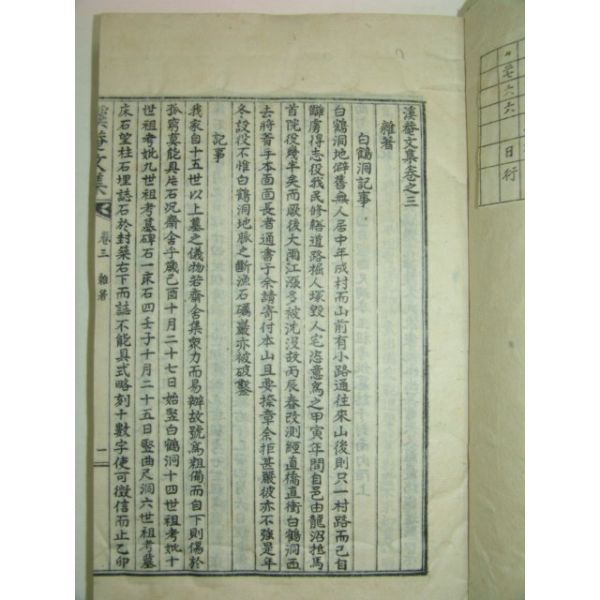 溪菴文集卷之三
雜著
白鶴洞記事
白鶴洞地僻舊無人居中年成村而山前有小路通往來山後則只一村路而已自
讎虜得志役我民修繕道路掘人塚毁人宅恣意爲之甲寅年間自邑由龍沼抵馬
首院役幾半矣而厥後大爾江漲多被沈沒故丙辰春改測經直橋直衝白鶴洞西
去將着手本面面長者通書于余請寄付本山且要捺章余拒甚嚴彼亦不強是年
冬設役不惟白鶴洞地脉之斷漁石礪巖亦被破鑿
記事
我家自十五世以上墓之儀物若齋舍集衆力而易辦故號爲粗備而自下則傷於
孤窮莫能具片石況齋舍乎歲己酉十月二十七日始竪白鶴洞十四世祖考妣十
世祖考妣九世祖考墓碑石一床石四壬子十月二十五日竪曲尺洞六世祖考墓
床石望柱石埋誌石於封築右下而誌不能具式略刻十數字使可徵信而止乙卯
溪菴文集
卷三 雜著
一
日 行